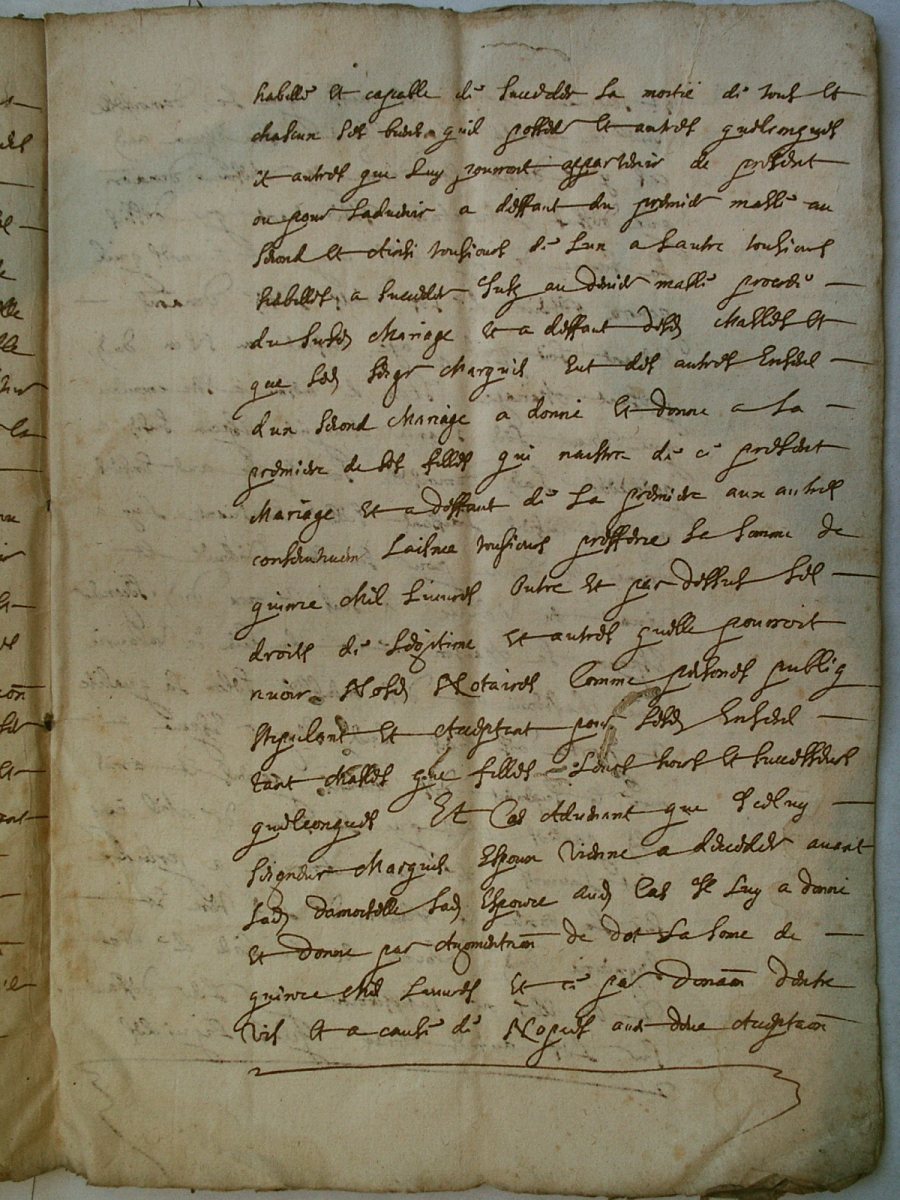 habille et capable de succeder la moitié de tous et
chascun ses biens quil possede et autres quelconques
et autres que luy pourront appartenir de present
ou pour ladvenir a deffaut du premier masle au
second et ainsi tousiours de lun a lautre tousiours
habilles a succeder au dernier masle procréé
du susd mariage et a deffaut desd masles et
que led seigr marquis eut des autres enfens
dun second mariage a donné et donne a la
premiere de ses filles qui naistra de ce present
mariage et a deffaut de la premiere aux autres
laisnee tousiours prefferee la somme de
quinze mil livres outre et par dessus ses
droits de legitime et autres quelle pourroit
avoir nosd notaires comme personnes publiq
stipulant et acceptant pour lesd enfens
tant masles que filles leurs hoirs et successeurs
quelconques Et cas advenant que icelluy
seigneur marquis espoux vienne a deceder avant
lad damoiselle lad espouze aud cas il luy a donné
et donne par augmentaon de dot la some de
quinze mil livres et ce par donaon dentre
vifs et a cause de nopces avec deue acceptaon